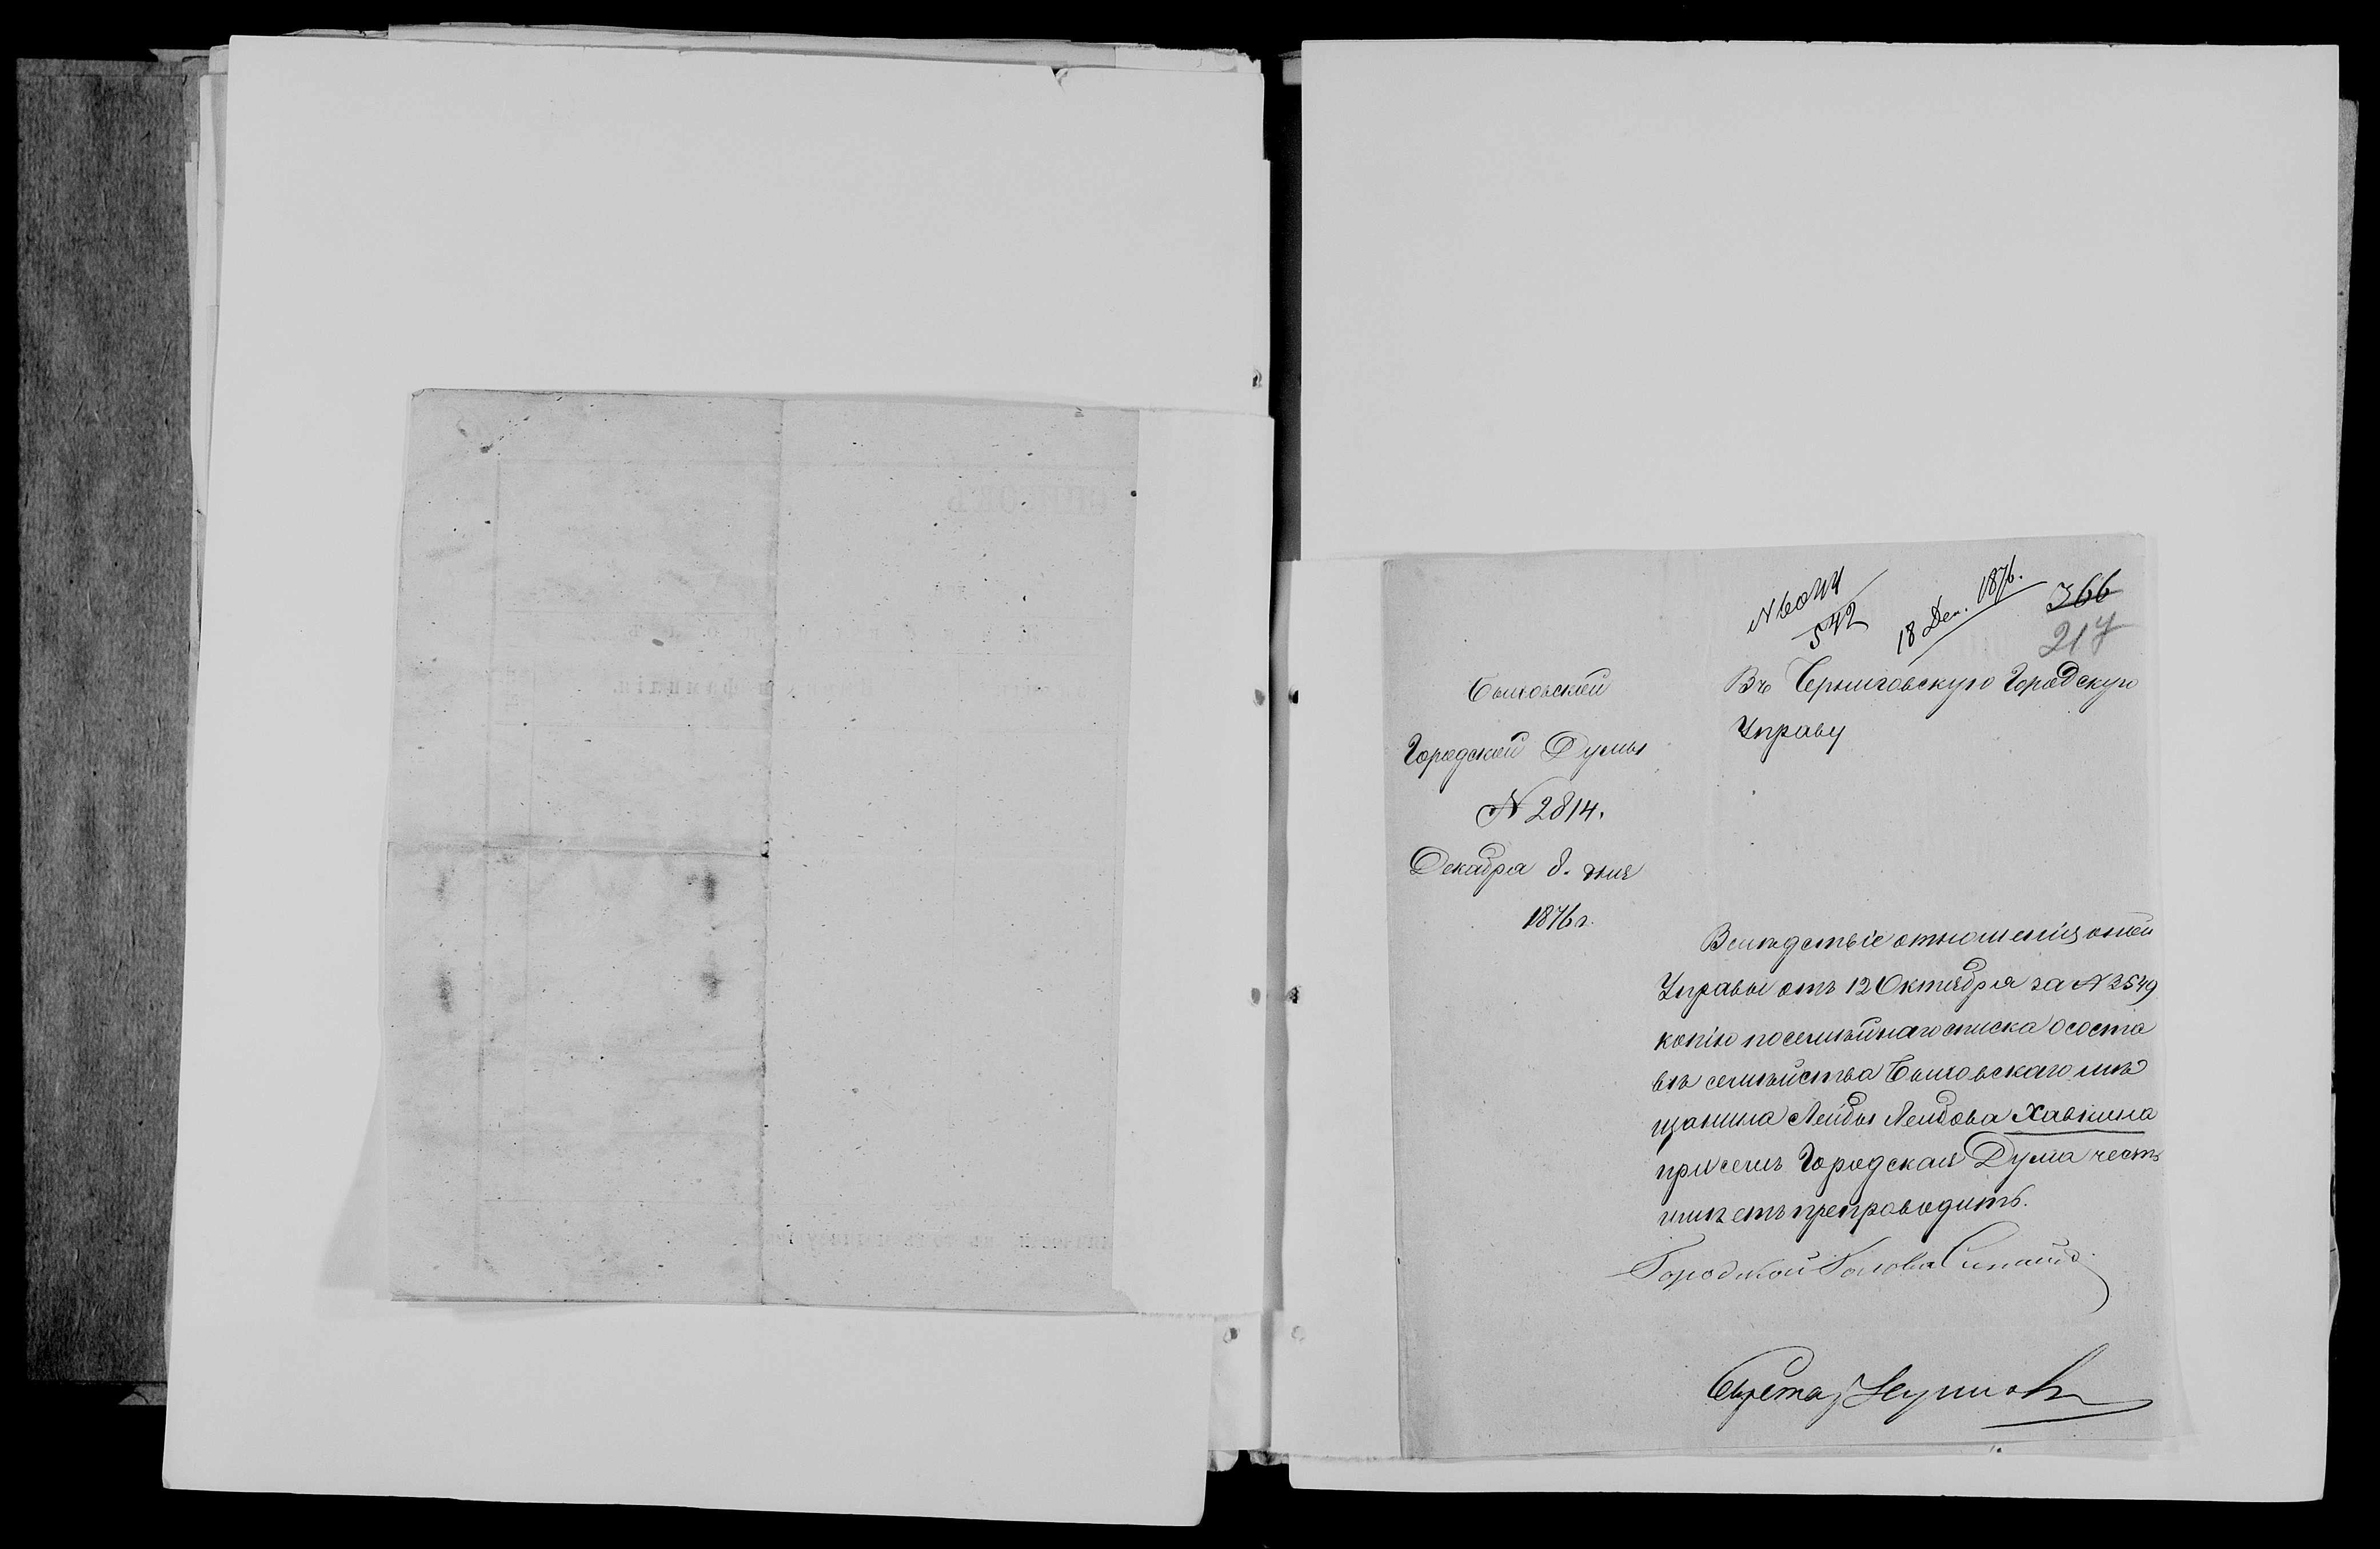 N 6044
542
18 Дек. 1876.
366
217
Быховской
Городской Думы
N 2814.
Декабря 8. дня
1876 г.
Въ Черниговскую Городскую
Управу
Вслѣдствіе отношенія оной
Управы отъ 12 Октября за N 3549
копію посемейнаго списка о соста
вѣ семейства Быховскаго мѣ
щанина Лейбы Лейбова Хавкина
при семъ Городская Дума честь
имѣетъ препроводить.
Городской Голова
Секретарь